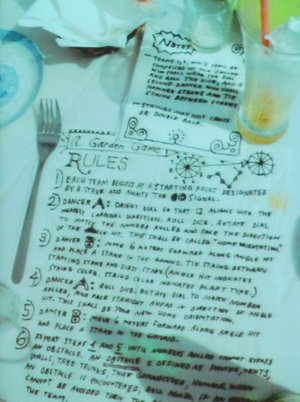 NOTES:
TEAMS
SECOND DANCER WHO
HAMMER STAKES AND THE
STRING BETWEEN STAKES
STRINGS MAY NOT CROSS
OR DOUBLE BACK.
A Garden Game
RULES
1 EACH TEAM BEGINS AT A STARTING POINT DESIGNATED
BY A STAKE AND AWAITS THE GO SIGNAL.
2 DANCER A: ORIENT DIAL SO THAT 12 ALIGNS WITH THE
NEAREST CARDINAL DIRECTION. ROLL DICE. ROTATE DIAL
TO MATCH THE NUMBER ROLLED AND FACE THE DIRECTION
OF THE HIT. THIS SHALL BE CALLED "HOME ORIENTATION."
3 DANCER B: MOVE 6 METERS FORWARD ALONG ANGLE HIT
AND PLACE A STAKE IN THE GROUND. TIE STRING BETWEEN
STARTING STAKE AND FIRST STAKE (ANGLE HIT INDICATES
STRING COLOR. STRING COLOR INDICATES PLANT TYPE.)
4 DANCER A: ROLL DICE. ROTATE DIAL TO MATCH NUMBER
ROLLED, AND FACE STRAIGHT ABOVE IN DIRECTION OF ANGLE
HIT. THIS SHALL BE YOUR NEW HOME ORIENTATION.
5 DANCER B: MOVE 6 METERS FORWARD ALONG ANGLE HIT
AND PLACE A STAKE IN THE GROUND.
6 REPEAT STEPS 4 AND 5 UNTIL NUMBERS ROLLED CANNOT BYPASS
AN OBSTACLE. AN OBSTACLE IS DEFINED AS PATHS, VENTS,
WALLS, TREE TRUNKS, THICK GROUNDCOVER, HUMANS. WHEN
AN OBSTACLE IS ENCOUNTERED, ROLL AGAIN. IF
CANNOT BE AVOIDED THEN THE
THE TEAM.